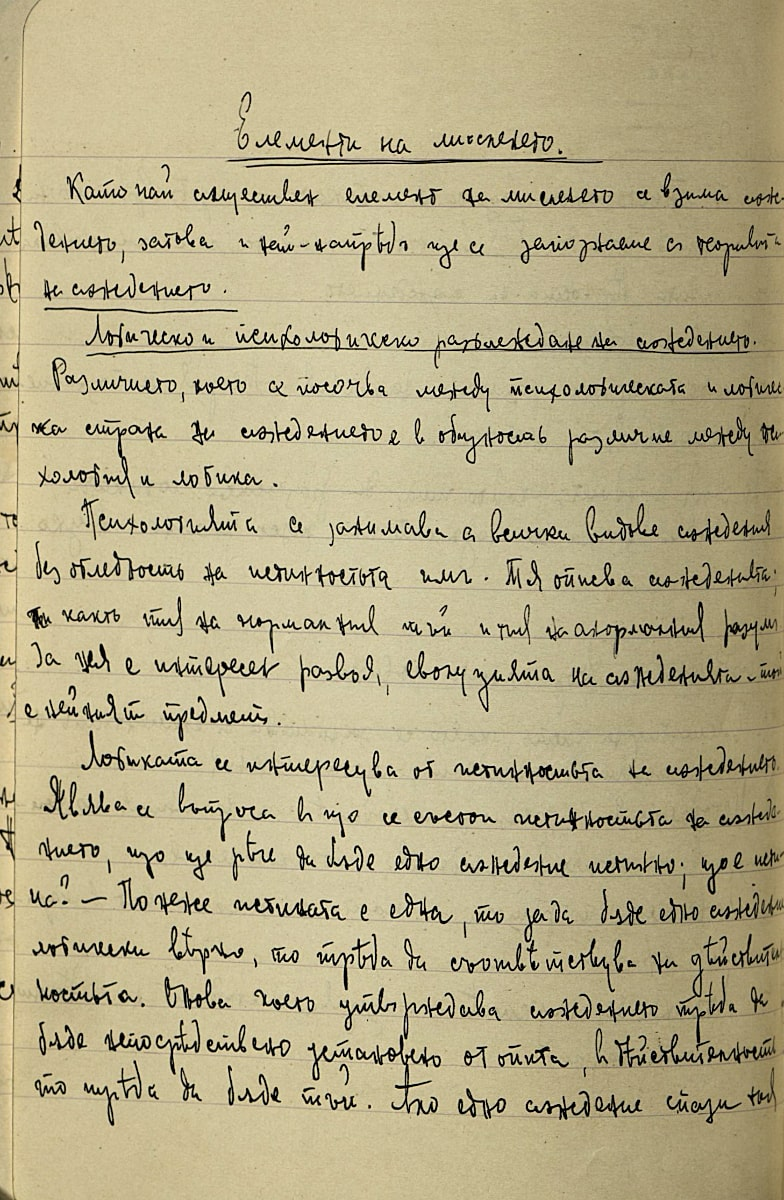 Елементи на мисленето.
Като най съществен елемент на мисленето се взима сѫж-
дението, затова и най-напрѣдъ ще се запознаем с теорията
на сѫждението.
Логическо и психологическо разглеждане на сѫждението.
Различието, което се посочва между психологическата и логичес
ка страна на сѫждението е в общность различие между пси
хология и логика.
Психологията се занимава с всички видове сѫждения
без огледность на истинностьта имъ. Тя описва сѫжденията;
както тия на нормалния тъй и тия на анормалния разумъ
За нея е интересен развоя, еволуцията на сѫжденията - той
е нейният предметъ.
Логиката се интересува от истинностьта на сѫждението.
Явява се въпроса в що се състои истинностьта на сѫжде-
нието, що ще рѣче да бѫде едно сѫждение истинно; що е исти-
на? — Понеже истината е една, то за да бѫде едно сѫждение
логически вѣрно, то трѣбва да съответствува на дѣйствител
ностьта. Онова което утвърждава сѫждението трѣбва да
бѫде непосрѣдствено установено от опита, в дѣйствителность
то трѣбва да бѫде тъй. Ако едно сѫждение спази